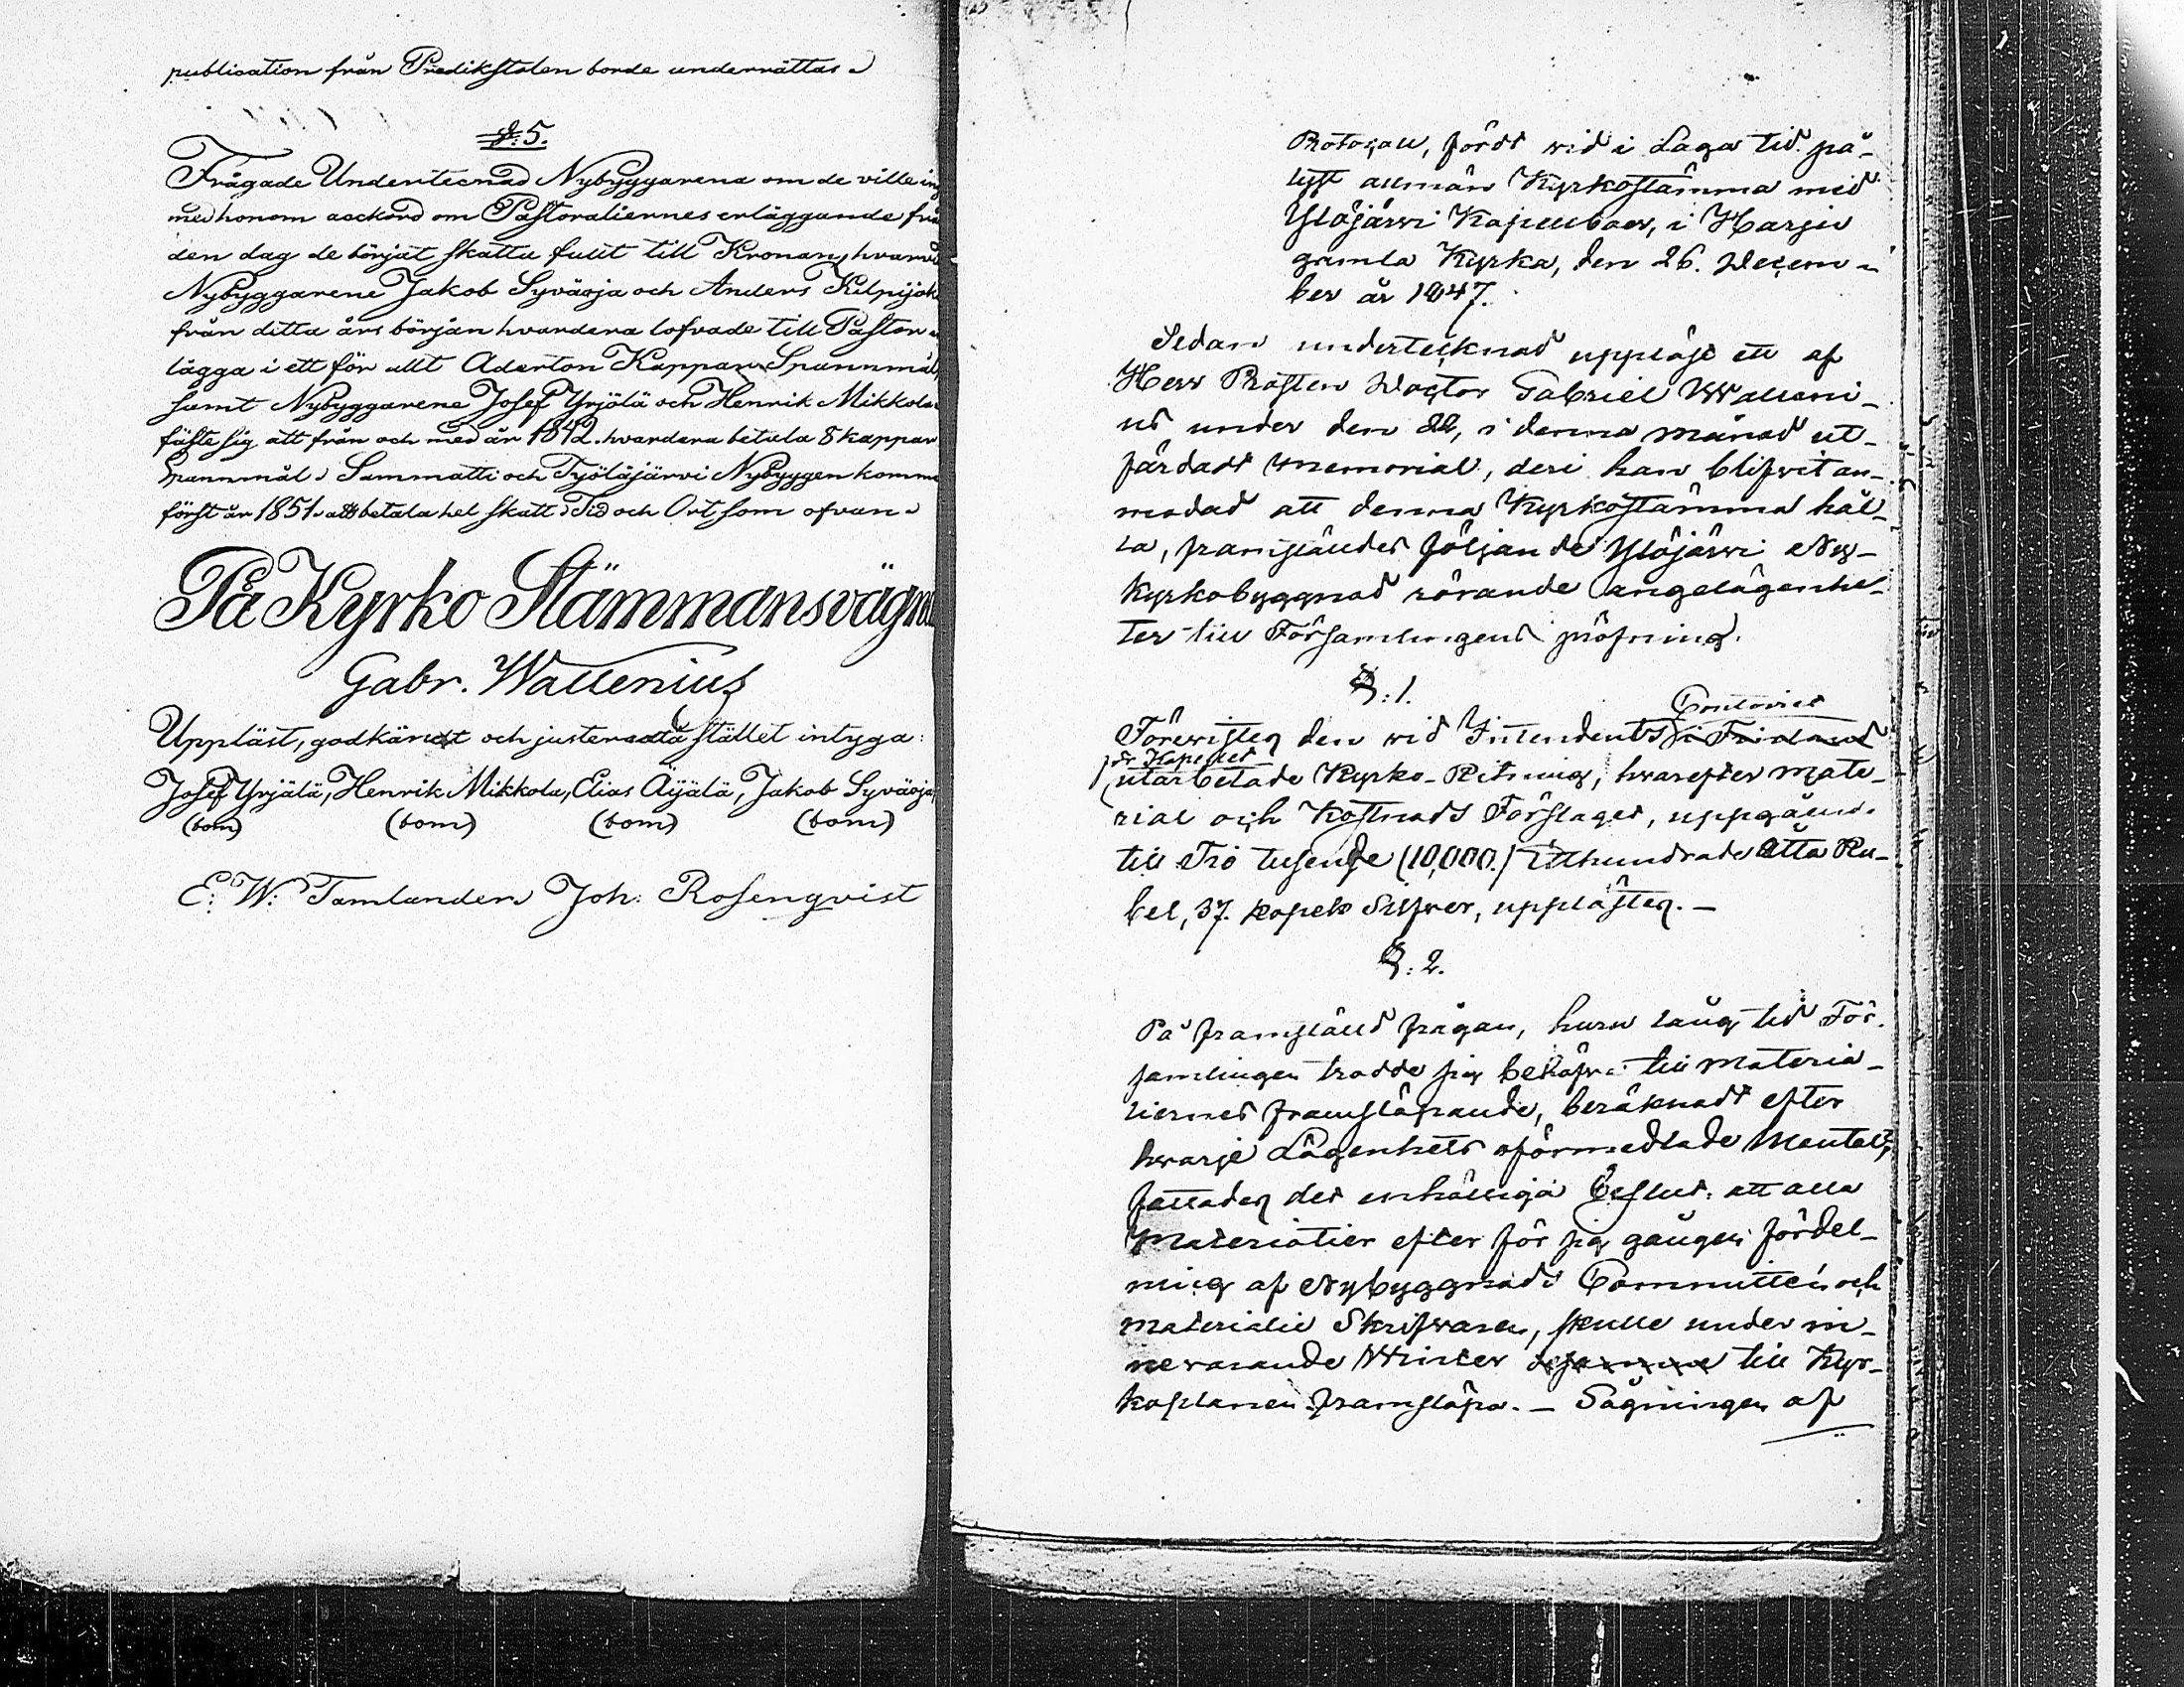 publication från Predikstolen borde underrättas.
§: 5.
Frågade Undertecnad Nybyggarena om de ville in
med honom aackord om Pastoraliernes erläggande frå
den dag de börjat skatta fullt till Kronan, hvarvid
Nybyggarene Jakob Syväoja och Anders Kilpijok
från ditta års början hvardera lofvade till Pastor
lägga i ett för allt Aderton Kappar Spannmål,
samt Nybyggarene Josef Yrjölä och Henrik Mikkola
fäste sig att från och med år 1842. hvardera betala 8 kappar
Spannmål. Sammatti och Työläjärvi Nybyggen komma
först år 1851. att betala hel skatt. Tid och Ort som ofvan.
På Kyrko Stämmans vägna
Gabr. Wallenius
Uppläst, godkändt och justeradt å stället intyga:
Josef Yrjälä, Henrik Mikkola, Elias Äijälä, Jakob Syväoja
(bom) (bom) (bom) (bom)
E: W: Tamlander. Joh: Rosenqvist
Protocoll, fördt wid i Laga tid på-
lyst allmän Kyrkostämma med
Ylöjärwi Kapellboer, i Harju
gamla Kyrka, den 26. Decem-
ber år 1847.
Sedan undertecknad uppläst ett af
Herr Prosten Doctor Gabriel Walleni-
us under den 22, i denna månad ut-
färdadt Memorial, deri han blifwit an-
modad att denna Kyrkostämma hål-
la, framställdes följande Ylöjärwi Ny-
kyrkobyggnad rörande angelägenhe-
ter till Församlingens pröfning.
§: 1.
Contoiret
Förewistes den wid Intendents i Finland
för Kapellet
utarbetade Kyrko-Ritning, hwarefter mate-
rial och Kostnads Förslaget, uppgående
till Tio tusende (10,000.) Etthundrade Åtta Ru-
bel, 37. kopek Silfwer, upplästes. -
§: 2.
På framställd frågan, huru lång tid För-
samlingen trodde sig behöfva till Materia-
liernes framsläpande, beräknadt efter
hwarje Lägenhets oförmedlade Mantal,
fattades det enhälliga Beslut: att alla
Materialier efter för sig gången fördel-
ning af Nybyggnads Committén och
materialie Skrifwaren, skulle under in-
newarande Winter till Kyr-
koplanen framsläpa. - Sågningen af